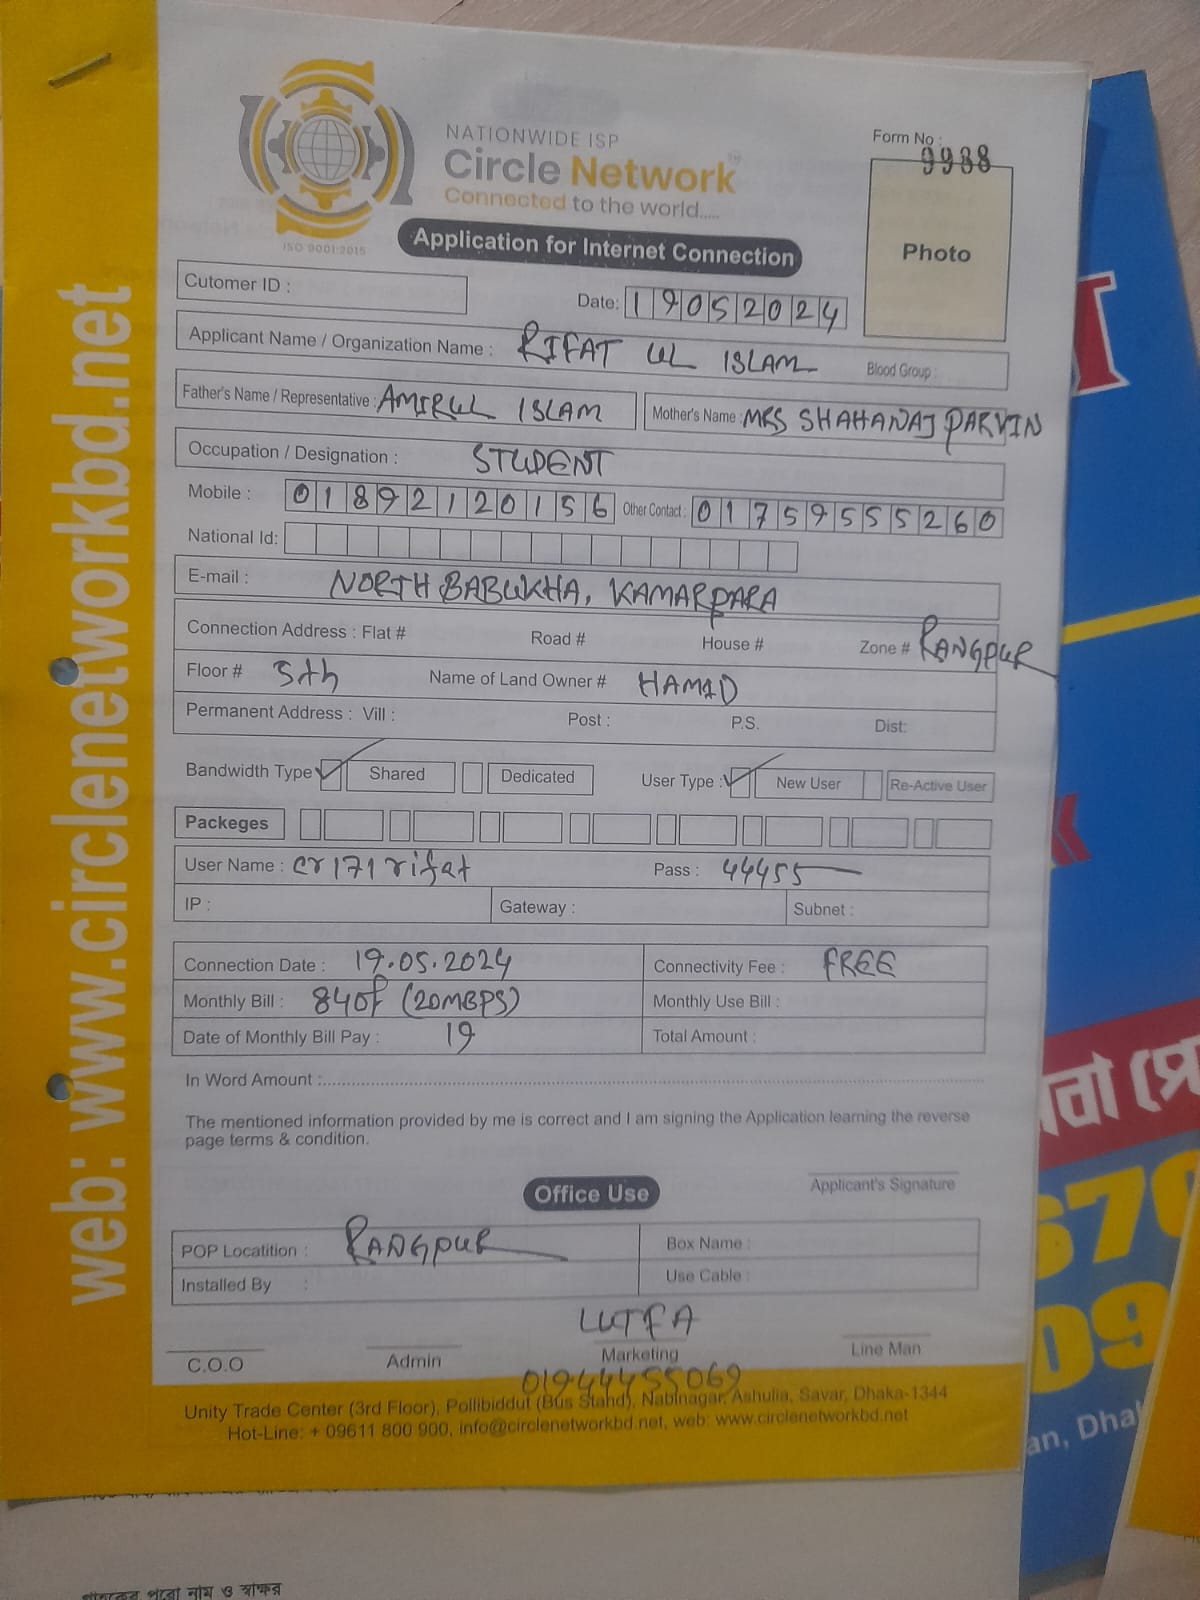 web: www.circlenetworkbd.net
NATIONWIDE ISP
Circle Network™
Connected to the world.....
ISO 9001:2015
Form No :
9938
Photo
Application for Internet Connection
Cutomer ID :
Date: 19052024
Applicant Name / Organization Name : RIFAT UL ISLAM Blood Group :
Father's Name / Representative : AMIRUL ISLAM Mother's Name : MRS SHAHANAJ PARVIN
Occupation / Designation : STUDENT
Mobile : 01892120156 Other Contact : 01759555260
National Id:
E-mail : NORTH BABUKHA, KAMARPARA
Connection Address : Flat # Road # House # Zone # RANGPUR
Floor # 5th Name of Land Owner # HAMID
Permanent Address : Vill : Post : P.S. Dist:
Bandwidth Type Shared Dedicated User Type : New User Re-Active User
Packeges
User Name : cr171rifat Pass : 44455
IP : Gateway : Subnet :
Connection Date : 19.05.2024 Connectivity Fee : FREE
Monthly Bill : 840 (20MBPS) Monthly Use Bill :
Date of Monthly Bill Pay : 19 Total Amount :
In Word Amount :
The mentioned information provided by me is correct and I am signing the Application learning the reverse
page terms & condition.
Applicant's Signature
Office Use
POP Locatition : RANGPUR Box Name :
Installed By : Use Cable :
LUTFA
C.O.O Admin Marketing Line Man
01944455069
Unity Trade Center (3rd Floor), Pollibiddut (Bus Stand), Nabinagar, Ashulia, Savar, Dhaka-1344
Hot-Line: + 09611 800 900, info@circlenetworkbd.net, web: www.circlenetworkbd.net
670
09
an, Dha